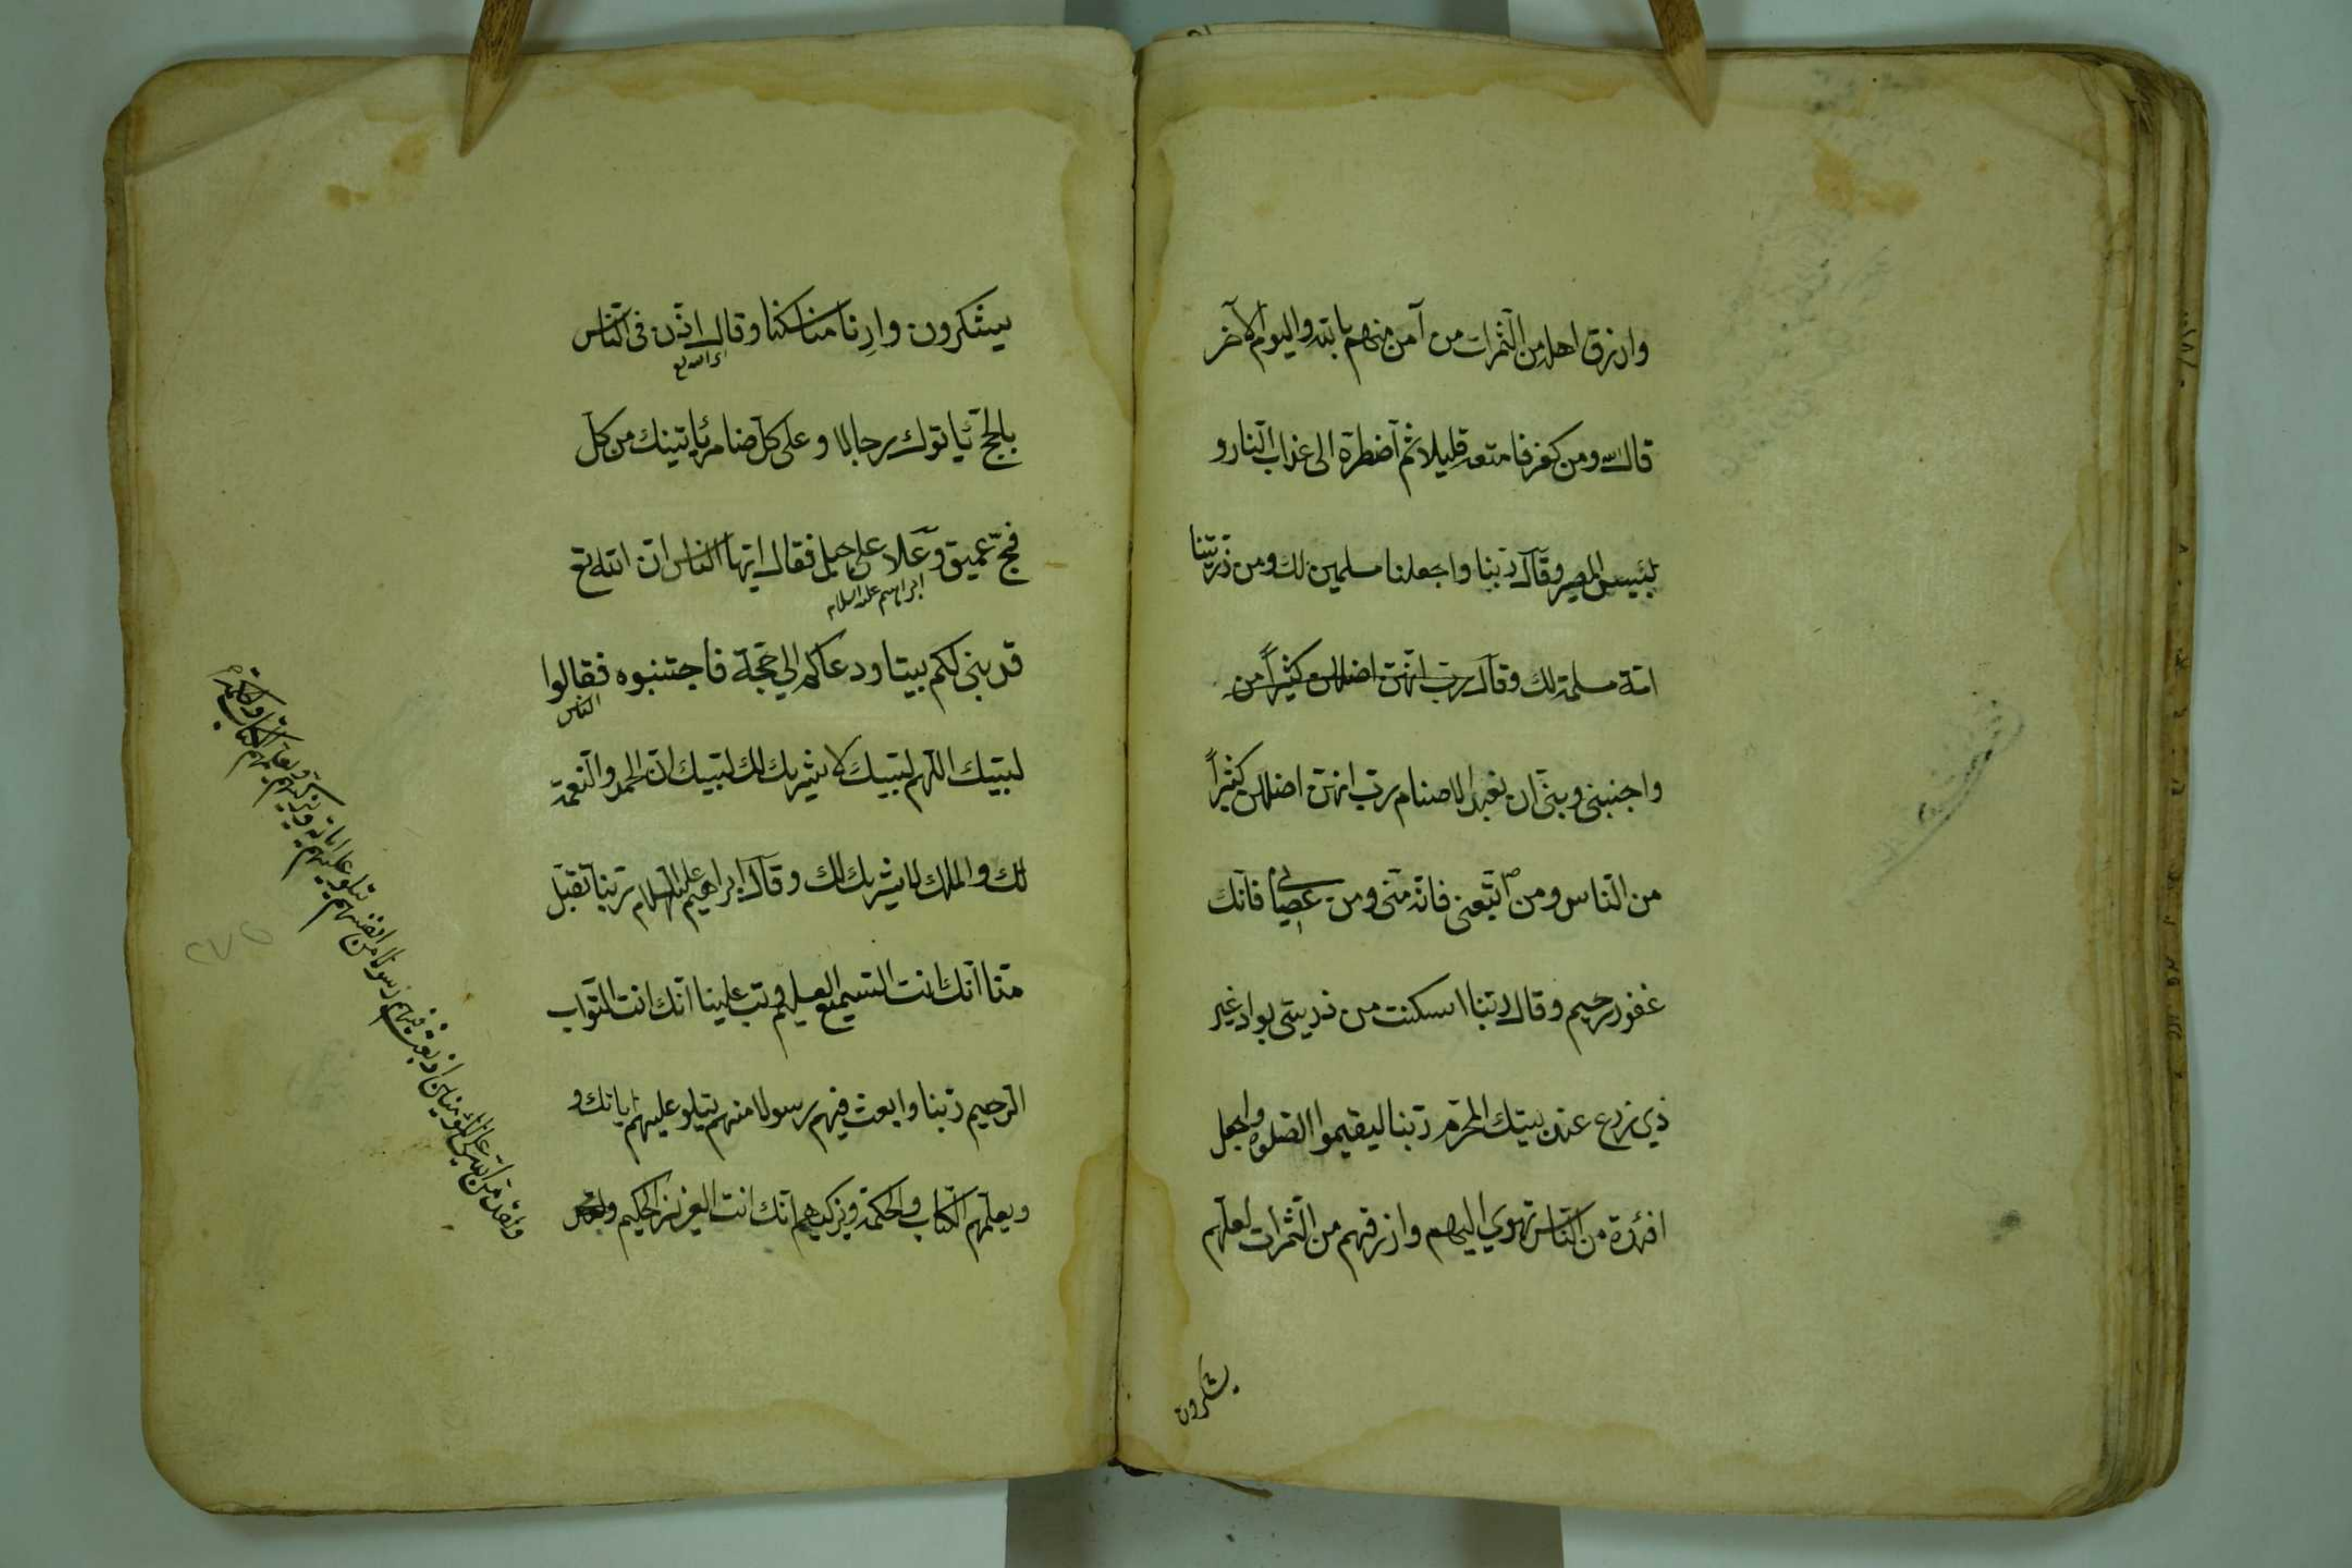 وارزق اهله من الثمرات من آمن منهم بالله واليوم الآخر
قال الله ومن كفر فامتعه قليلا ثم اضطره الى عذاب النار و
لبئس المصير وقال ربنا واجعلنا مسلمين لك ومن ذريتنا
امة مسلمة لك وقال رب انهن اضللن كثيراً من
واجنبني وبني ان نعبد الاصنام رب انهن اضللن كثيراً
من الناس ومن اتبعني فانه مني ومن عصاني فانك
غفور رحيم وقال ربنا اسكنت من ذريتي بواد غير
ذي زرع عند بيتك المحرم ربنا ليقيموا الصلوة واجعل
افئدة من الناس تهوي اليهم وارزقهم من الثمرات لعلهم
يشكرون
يشكرون وارنا مناسكنا وقال اذن في الناس
بالحج يأتوك رجالا وعلى كل ضامر يأتينك من كل
فج عميق وعلا على جبل فقال ايها الناس ان الله تع
ابراهيم عليه السلام
قد بنى لكم بيتا ودعاكم الى حجه فاجتنبوه فقالوا
الناس
لبيك اللهم لبيك لا شريك لك لبيك ان الحمد والنعمة
لك والملك لا شريك لك وقال ابراهيم عليه السلام ربنا تقبل
منا انك انت السميع العليم وتب علينا انك انت التواب
الرحيم ربنا وابعث فيهم رسولا منهم يتلو عليهم اياتك و
ويعلمهم الكتاب والحكمة ويزكيهم انك انت العزيز الحكيم
ولقد من الله على المؤمنين اذ بعث فيهم رسولا من انفسهم يتلو عليهم اياته ويزكيهم ويعلمهم الكتاب والحكمة
٢٧٥